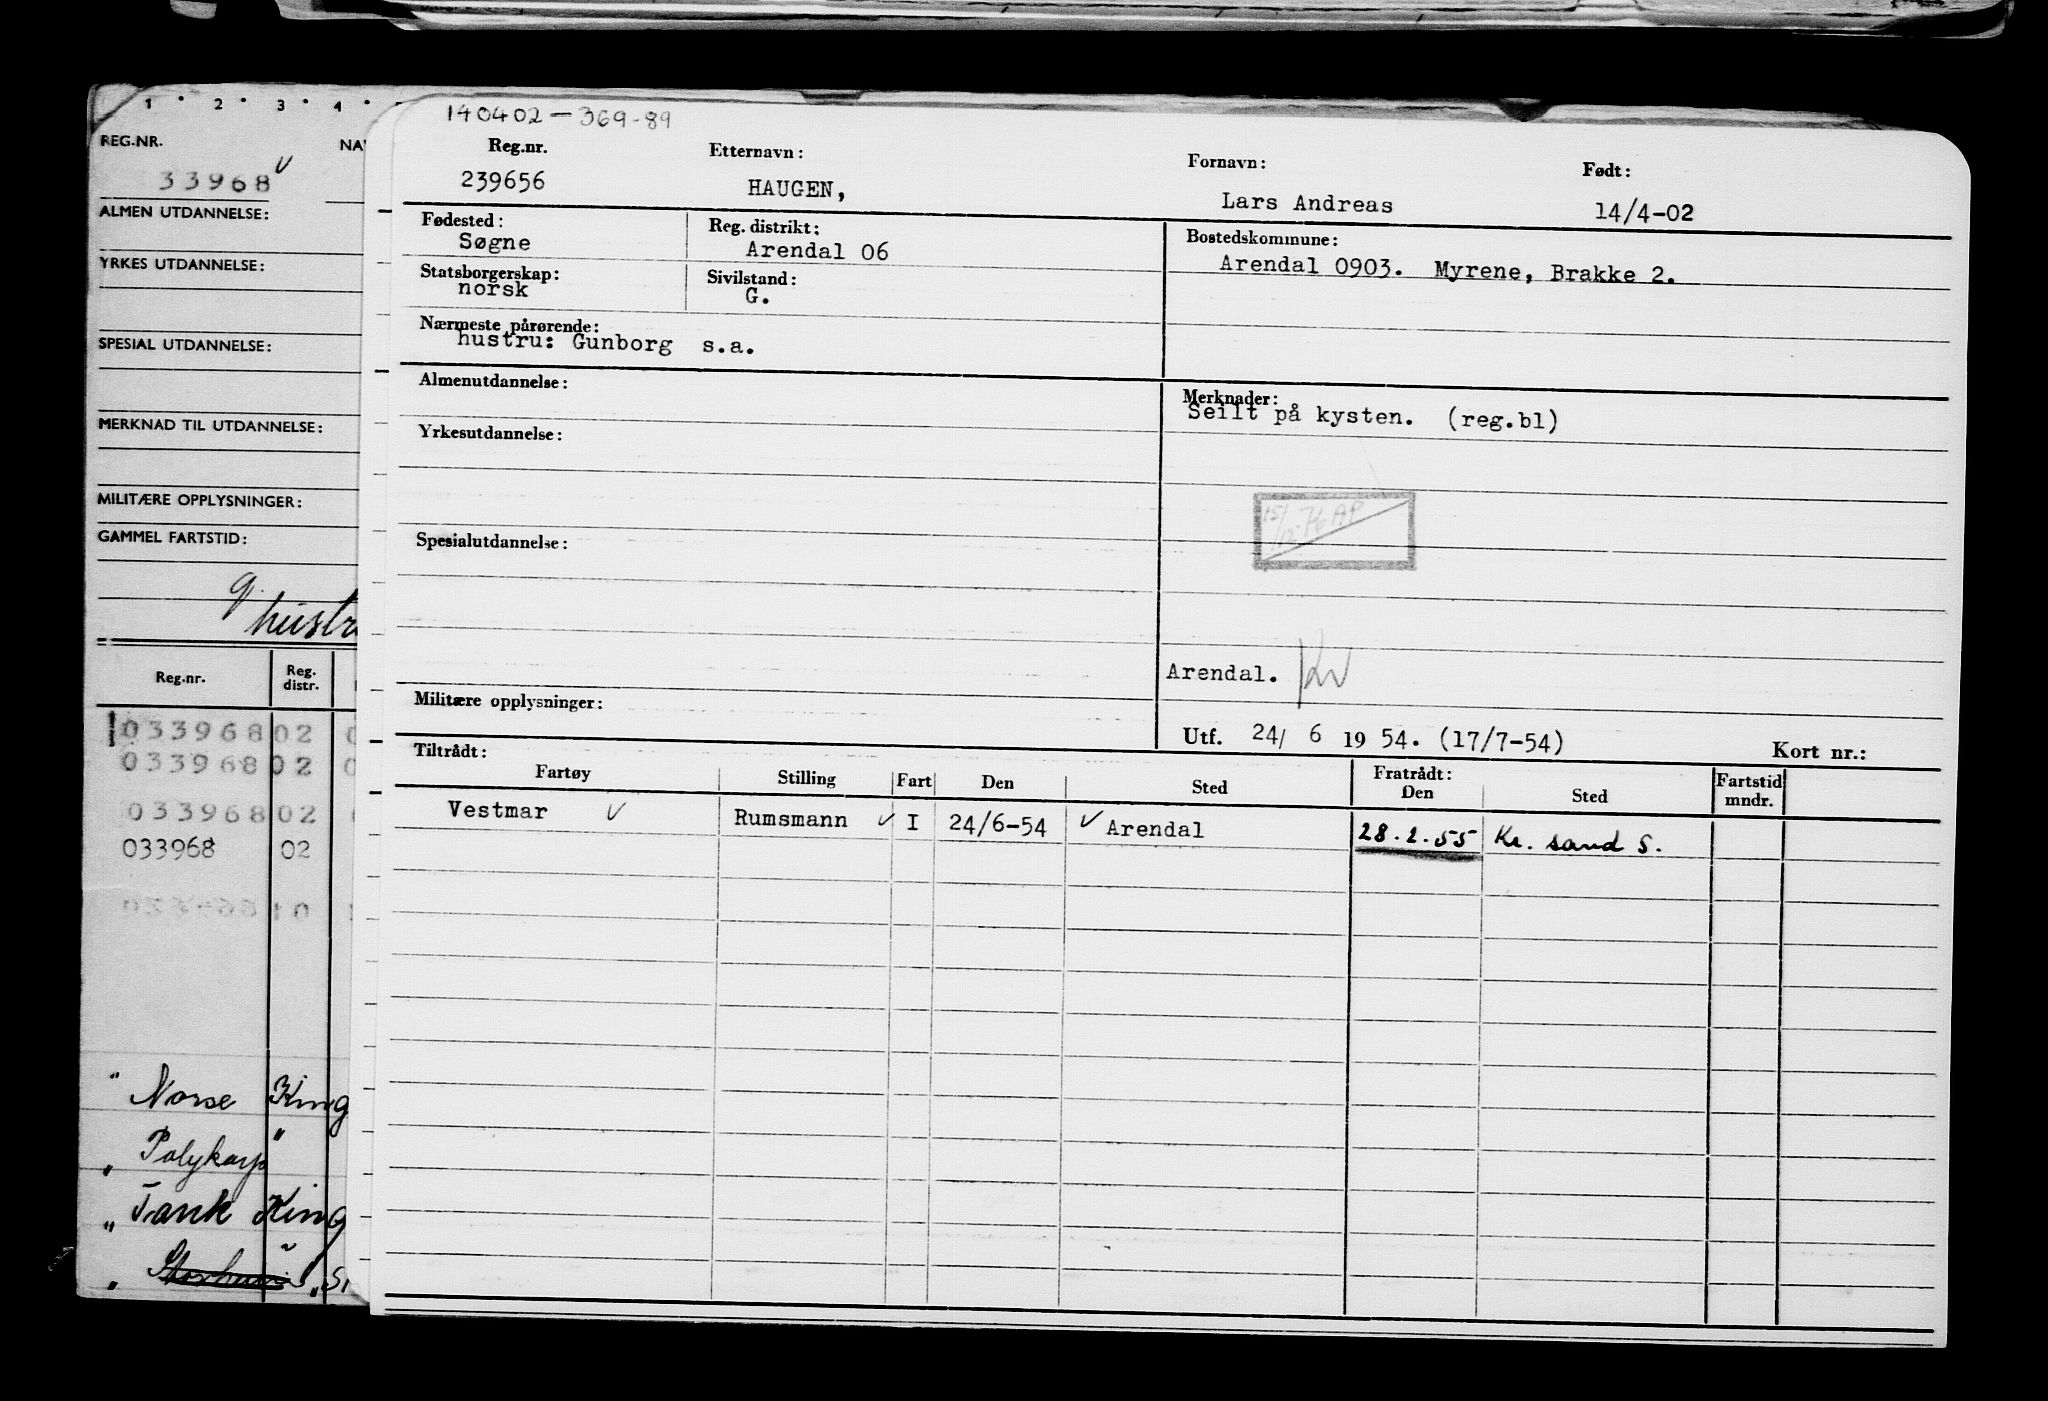 1 · 2 · 3 · 4 ·
REG.NR.
33968
ALMEN UTDANNELSE:
YRKES UTDANNELSE:
SPESIAL UTDANNELSE:
MERKNAD TIL UTDANNELSE:
MILITÆRE OPPLYSNINGER:
GAMMEL FARTSTID:
g.
Reg.nr. Reg. distr.
033968 02
033968 02
033968 02
033968 02
" Norse King
" Polykarp "
" Tank King
140402-369-89
Reg.nr. Etternavn: Fornavn: Født:
239656 HAUGEN, Lars Andreas 14/4-02
Fødested: Reg. distrikt: Bostedskommune:
Søgne Arendal 06 Arendal 0903. Myrene, Brakke 2.
Statsborgerskap: Sivilstand:
norsk G.
Nærmeste pårørende:
hustru: Gunborg s.a.
Almenutdannelse: Merknader:
Seilt på kysten. (reg.bl)
Yrkesutdannelse:
15/12-76 AP
Spesialutdannelse:
Arendal.
Militære opplysninger:
Utf. 24/ 6 19 54. (17/7-54) Kort nr.:
Tiltrådt: Fratrådt:
Fartøy Stilling Fart Den Sted Den Sted Fartstid mndr.
Vestmar Rumsmann I 24/6-54 Arendal 28.2.55 Kr. sand S.